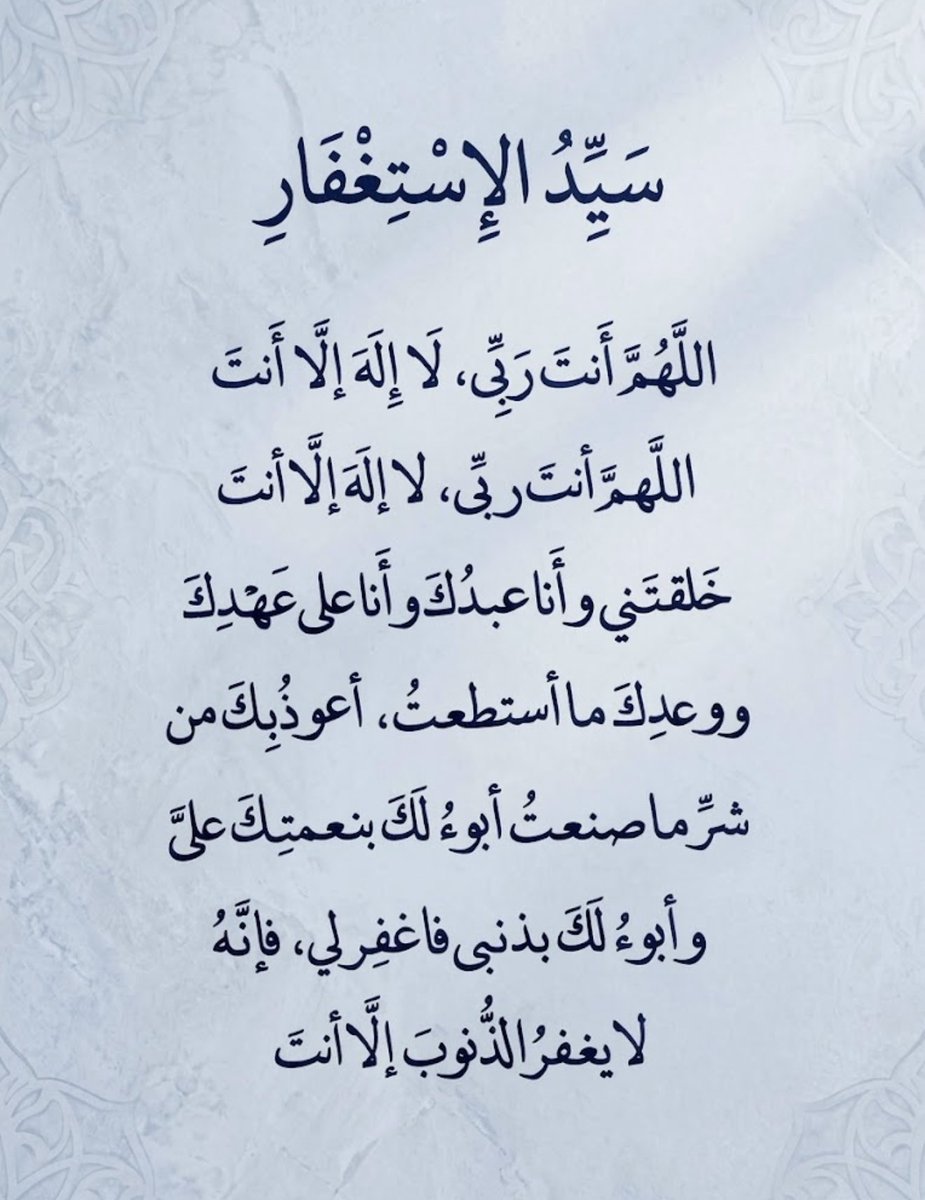 سَيِّدُ الإِسْتِغْفَارِ
اللَّهُمَّ أَنتَ رَبِّى، لَا إِلَهَ إلَّا أَنتَ
اللَّهمَّ أنتَ ربِّى، لا إلَهَ إلَّا أنتَ
خَلقتَني وأَنا عبدُكَ وأَنا على عَهْدِكَ
ووعدِكَ ما أستطعتُ، أعوذُ بِكَ من
شرِّ ما صنعتُ أبوءُ لَكَ بنعمتِكَ علىَّ
وأبوءُ لَكَ بذنبى فاغفِر لي، فإنَّهُ
لا يغفرُ الذُّنوبَ إلَّا أنتَ